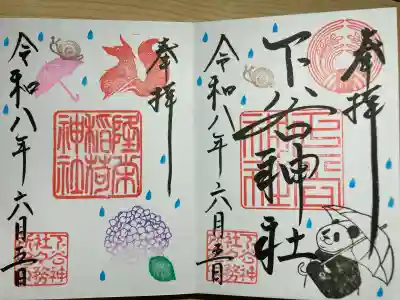 奉拝
下谷神社
下谷
神社
令和八年六月五日
下谷神
社々務
奉拝
隆栄
稲荷
神社
令和八年六月五日
下谷神
社々務